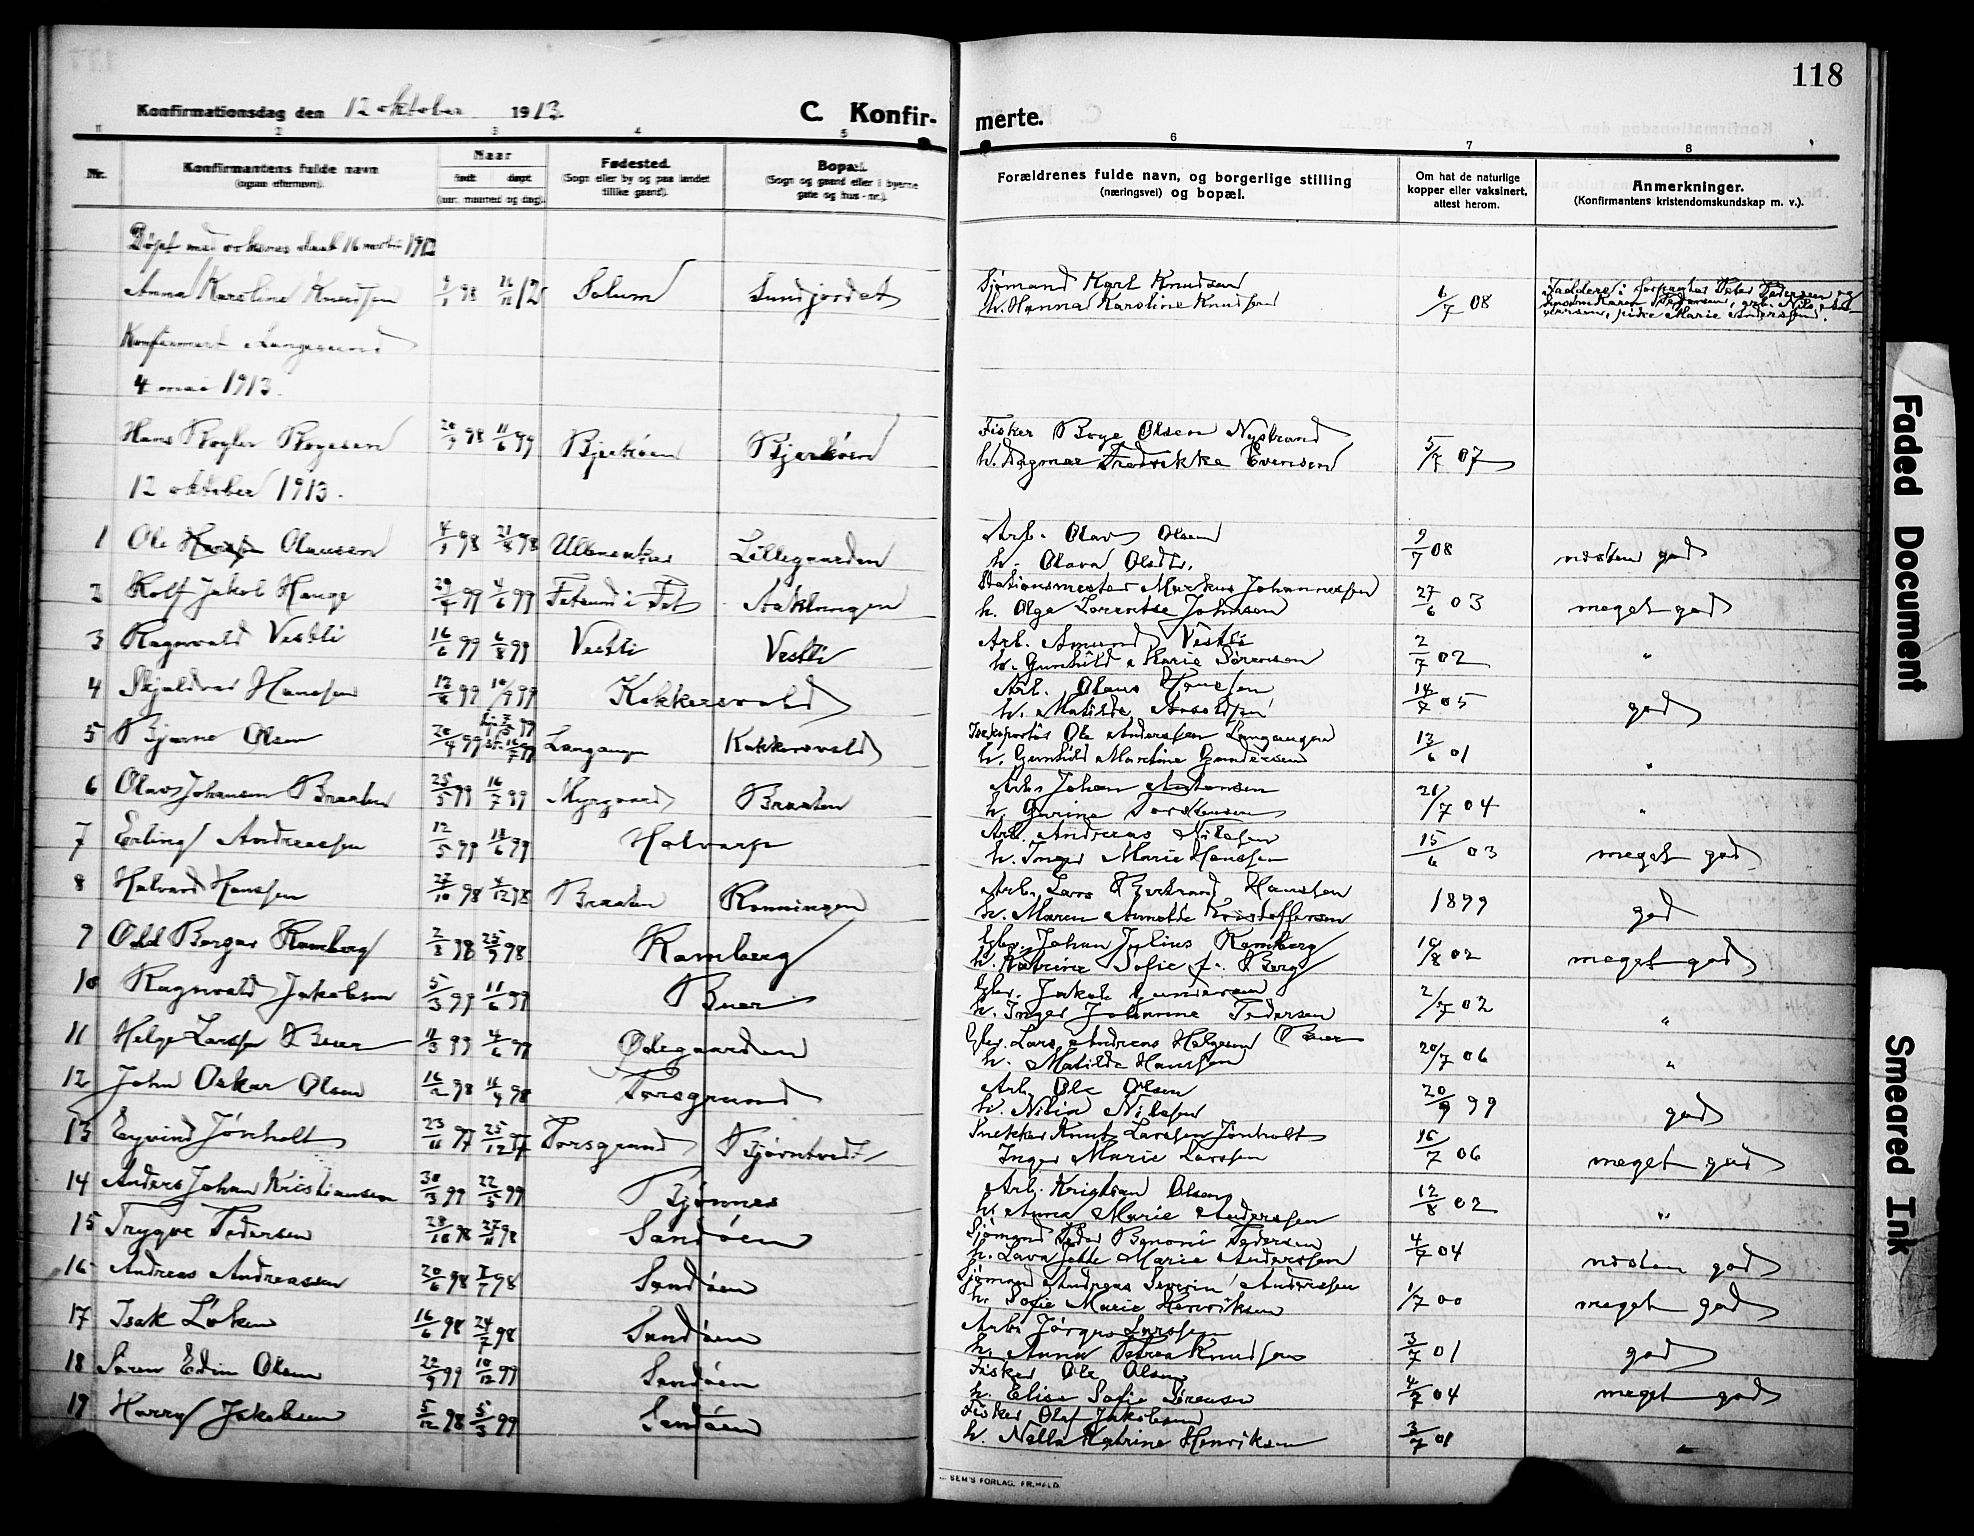 118
Konfirmationsdag den 12 oktober 1913.
C. Konfir-
merte.
1 2 3 4 5 6 7 8
Nr.
Konfirmantens fulde navn
(ogsaa efternavn).
Naar
født døpt
(aar, maaned og dag).
Fødested.
(Sogn eller by og paa landet
tillike gaard).
Bopæl.
(Sogn og gaard eller i byerne
gate og hus-nr.).
Forældrenes fulde navn, og borgerlige stilling
(næringsvei) og bopæl.
Om hat de naturlige
kopper eller vaksinert,
attest herom.
Anmerkninger.
(Konfirmantens kristendomskundskap m. v.).
Døpt med voksnes daab 16 1912
Anna Karoline Knudsen 98 12 Solum Sundjordet
Sjømand Karl Knudsen
h. Hanna Karoline Knudsen
6/7 08
Faddere: Peder Pedersen og
hustru Karen Pedersen, arb. Nils
pike Marie Anderssen.
Konfirmert Langesund
4 mai 1913.
Hans Bøgler Bogesen 98 11/6 99 Bjerkøen Bjerkøen
Fisker Boye Olsen Nystrand
h. Dagmar Fredrikke Evensen
5/7 07
12 oktober 1913.
1 Ole Olausen 98 98 Lillegaarden
Arb. Olav Olsen
h. Olava Olsdtr.
9/7 08 næsten god
2 Rolf Jakob Hauge 29/4 99 4/6 99 Fetsund i Fet Aaklungen
Stationsmester Markus Johannessen
h. Olga Lorentse Johnsen
27/6 03 meget god
3 Ragnvald Vestli 16/6 99 6/8 99 Vestli Vestli
Arb. Amund Vestli
h. Gunhild Marie Sørensen
2/7 02 "
4 Skjoldvar Hanssen 12/8 99 10/9 99 Kokkersvold
Arb. Olaus Hanssen
h. Matilde Arnoldsen
14/7 05 god
5 Bjarne Olsen 20/4 99 Langangen Kokkersvold
Ole Anderssen Langangen
h. Gunhild Martine Gundersen
13/6 01 "
6 Olav Johansen Braaten 25/5 99 16/7 99 Myrgaard Braaten
Arb. Johan Antonsen
h. Gurine Torstensen
21/7 04 "
7 Erling Andreassen 12/5 99 18/6 99 Halvarp
Arb. Andreas Nilssen
h. Inger Marie Hanssen
15/6 03 meget god
8 Halvard Hanssen 27/10 98 4/12 98 Braaten Rønningen
Arb. Lars Bertrand Hanssen
h. Maren Arnolde Kristoffersen
1899 god
9 Odd Borgar Ramberg 2/8 98 25/9 98 Ramberg
Gbr. Johan Julius Ramberg
h. Katrine Sofie f. Berg
19/8 02 meget god
10 Ragnvald Jakobsen 5/3 99 11/6 99 Buer
Gbr. Jakob Gundersen
h. Inger Johanne Pedersen
2/7 02 "
11 Helge Larssen Buer 11/3 99 4/6 99 Ødegaarden
Gbr. Lars Andreas Helgesen Buer
h. Matilde Hanssen
20/7 06 "
12 John Oskar Olsen 16/2 98 11/4 98 Porsgrund
Arb. Ole Olsen
h. Nilia Nilssen
20/9 99 god
13 Eyvind Jønholt 23/11 97 25/12 97 Porsgrund Bjørntvedt
Snekker Knut Larssen Jønholt
Inger Marie Larssen
16/7 06 meget god
14 Anders Johan Kristiansen 30/3 99 22/5 99 Bjønnes
Arb. Kristian Olsen
h. Anna Marie Anderssen
12/8 02 "
15 Trygve Pedersen 28/10 98 27/11 98 Sandøen
Sjømand Peder Benoni Pedersen
h. Lava Jette Marie Anderssen
4/7 04 næsten god
16 Andreas Andreassen 20/6 98 7/7 98 Sandøen
Sjømand Andreas Severin Anderssen
h. Sofie Marie Henriksen
1/7 00 meget god
17 Isak Løken 16/6 98 24/7 98 Sandøen
Arb. Jørgen Larssen
h. Anna Petrea Knudsen
3/7 01 god
18 Søren Edvin Olsen 22/9 99 10/12 99 Sandøen
Fisker Ole Olsen
h. Elise Sofie Sørensen
4/7 04 meget god
19 Harry Jakobsen 5/12 98 5/3 99 Sandøen
Fisker Olaf Jakobsen
h. Nella Katrine Henriksen
3/7 01 "
SEM'S FORLAG, FR.HALD.
Faded Document
Smeared Ink